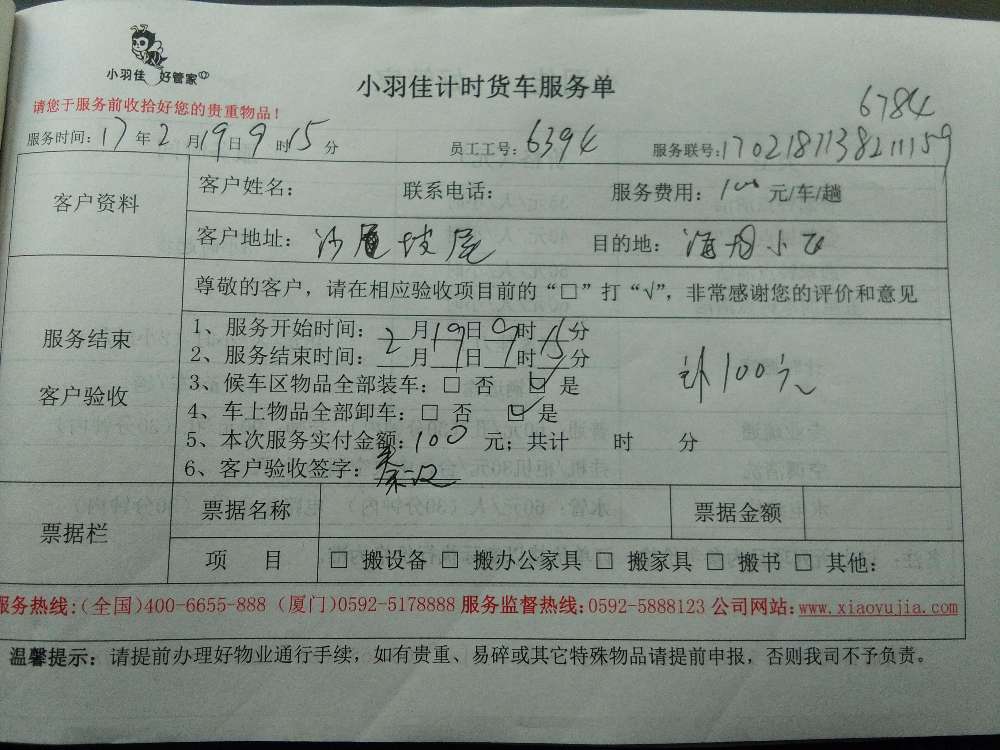 小羽佳 好管家
小羽佳计时货车服务单
请您于服务前收拾好您的贵重物品！
6784
服务时间：17年2月19日9时15分 员工工号：6394 服务联号：1702187138211159
客户资料
客户姓名： 联系电话： 服务费用：100元/车/趟
客户地址：沙 坡尾 目的地：海 小
服务结束
客户验收
尊敬的客户，请在相应验收项目前的“□”打“√”，非常感谢您的评价和意见
1、服务开始时间：2月19日9时15分
2、服务结束时间：2月19日9时15分
3、候车区物品全部装车：□ 否 ☑ 是
4、车上物品全部卸车：□ 否 ☑ 是
100元
5、本次服务实付金额：100元；共计 时 分
6、客户验收签字：
票据栏
票据名称 票据金额
项 目 □ 搬设备 □ 搬办公家具 □ 搬家具 □ 搬书 □ 其他：
服务热线:(全国)400-6655-888 (厦门)0592-5178888 服务监督热线:0592-5888123 公司网站:www.xiaoyujia.com
温馨提示：请提前办理好物业通行手续，如有贵重、易碎或其它特殊物品请提前申报，否则我司不予负责。